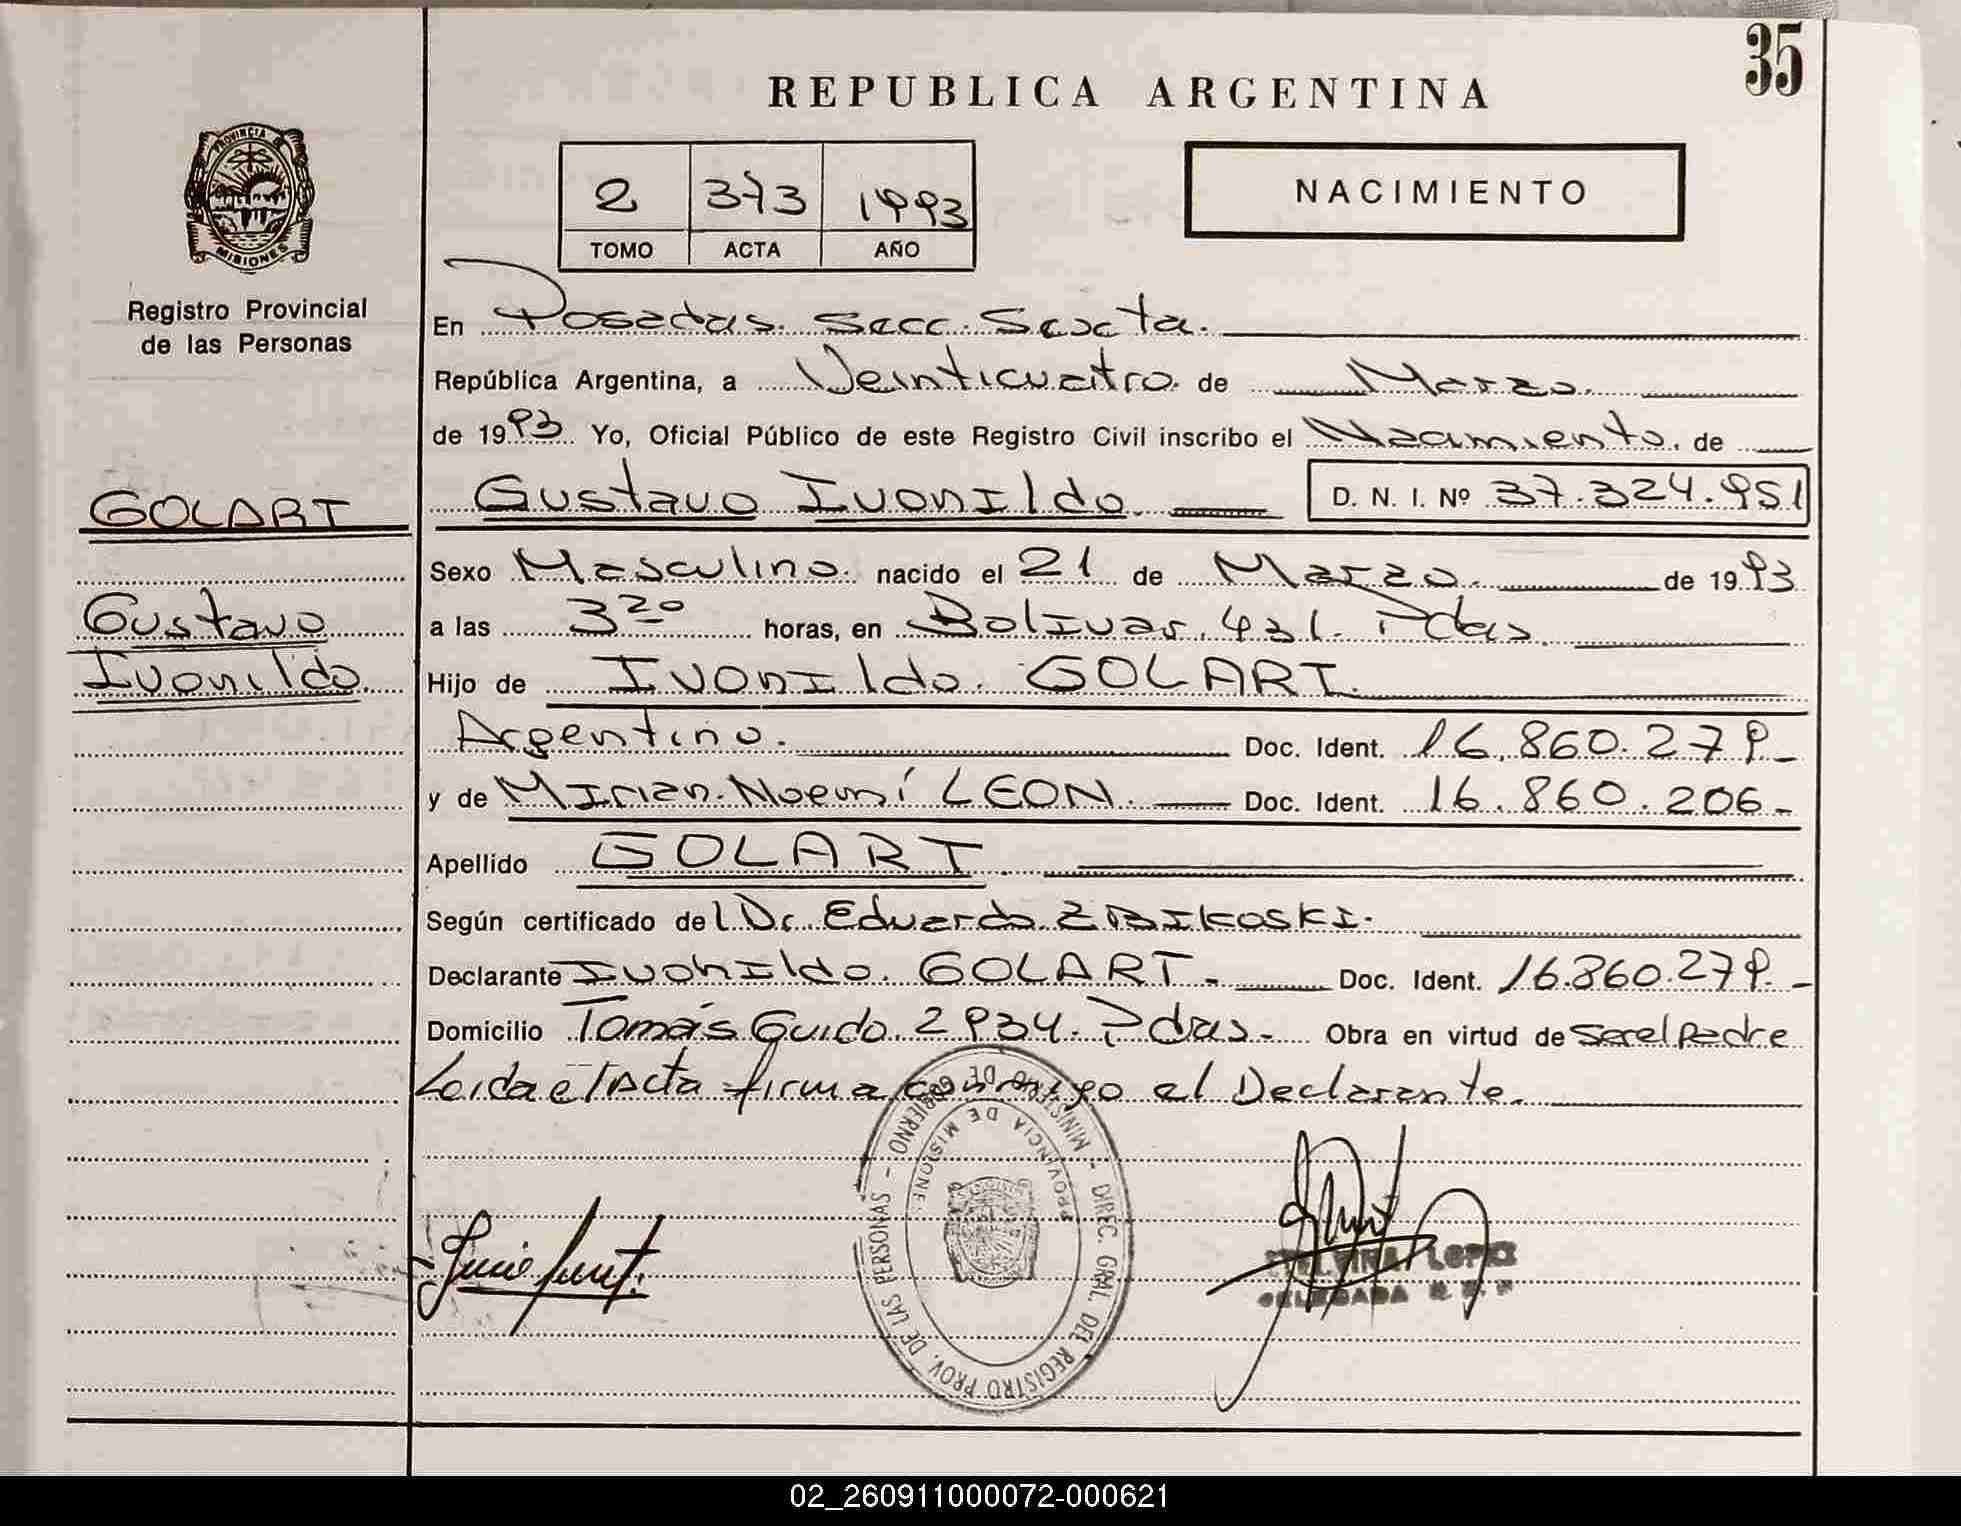 35
REPUBLICA ARGENTINA
PROVINCIA DE
MISIONES
2 373 1993
TOMO ACTA AÑO
NACIMIENTO
Registro Provincial
de las Personas
En Posadas. Secc. Sexta.
República Argentina, a Veinticuatro. de Marzo.
de 1993 Yo, Oficial Público de este Registro Civil inscribo el Nacimiento. de
GOLART
Gustavo Ivonildo. D. N. I. Nº 37.324.951
Sexo Masculino. nacido el 21 de Marzo. de 1993
Gustavo
Ivonildo.
a las 3 20 horas, en Bolivar. 431. Pdas.
Hijo de Ivonildo. GOLART.
Argentino. Doc. Ident. 16.860.279.-
y de Mirian. Noemí LEON. Doc. Ident. 16.860.206.-
Apellido GOLART
Según certificado del Dr. Eduardo ZBIKOSKI.
Declarante Ivonildo. GOLART.- Doc. Ident. 16.860.279.-
Domicilio Tomás Guido. 2934. Pdas.- Obra en virtud de ser el Padre
Leida el Acta firma conmigo el Declarante.
MINISTERIO DE GOBIERNO - DIREC. GRAL. DEL REGISTRO PROV. DE LAS PERSONAS
PROVINCIA DE MISIONES
LOPEZ
DELEGADA R. P. P
02_260911000072-000621